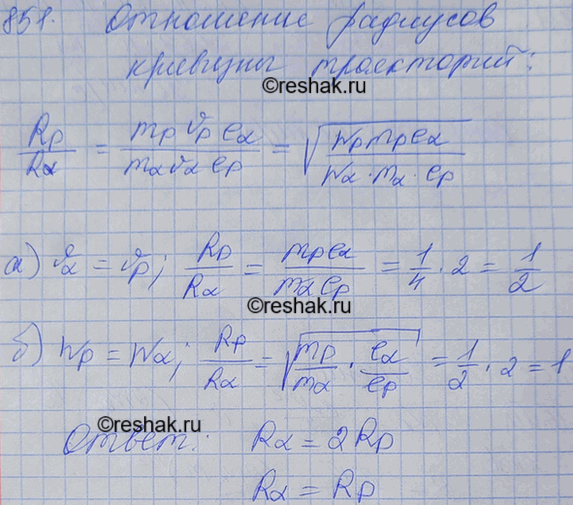 851. Отношение радиусов
кривизны траекторий:
©reshak.ru
Rp/Rα = mp vp eα / mα vα ep = √(Wp mp eα / Wα · mα · ep)
©reshak.ru
а) vα = vp; Rp/Rα = mp eα / mα ep = 1/4 · 2 = 1/2
©reshak.ru
б) Wp = Wα; Rp/Rα = √(mp/mα · eα/ep) = 1/2 · 2 = 1
©reshak.ru
Ответ: Rα = 2Rp
Rα = Rp